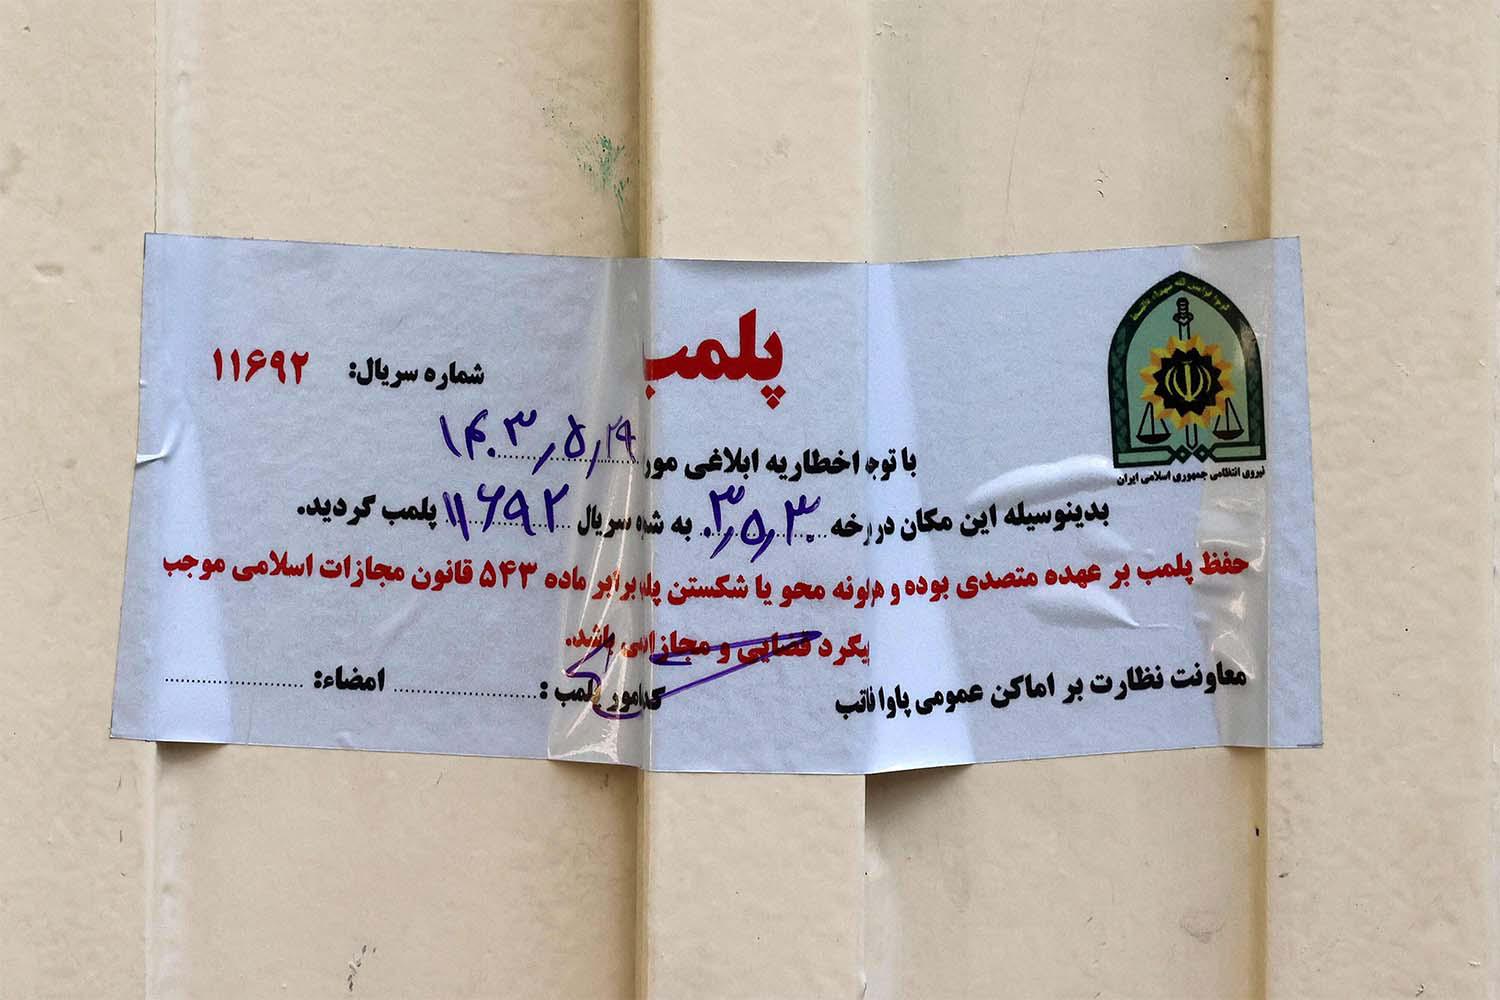 پلمب
شماره سریال: ۱۱۶۹۲
نیروی انتظامی جمهوری اسلامی ایران
با توجه اخطاریه ابلاغی مور ۱۴۰۳٫۵٫۲۹
بدینوسیله این مکان در رخه ۰۳٫۵٫۳۰ به شم سریال ۱۱۶۹۲ پلمب گردید.
حفظ پلمب بر عهده متصدی بوده و هرگونه محو یا شکستن پلمب برابر ماده ۵۴۳ قانون مجازات اسلامی موجب
پیگرد قضایی و مجازات می باشد.
معاونت نظارت بر اماکن عمومی پاوا فاتب
کد مامور پلمب : امضاء: